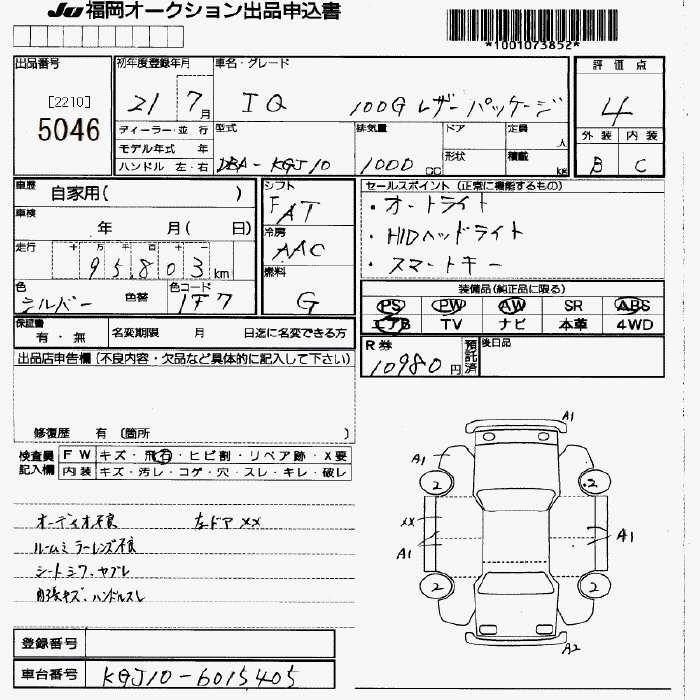 JU 福岡オークション出品申込書
*1001073852*
出品番号
[2210]
5046
初年度登録年月
21 7月
車名・グレード
IQ 100G レザーパッケージ
評価点
4
外装 内装
B C
ディーラー・並行
モデル年式 年
ハンドル 左・右
型式
DBA-KGJ10
排気量
1000 CC
ドア
形状
定員 人
積載 kg
車歴
自家用( )
車検
年 月( 日)
走行 十万千百十
95,803 km
色
シルバー
色替
色コード
1F7
シフト
F AT
冷房
AAC
燃料
G
セールスポイント (正常に機能するもの)
・オートライト
・HIDヘッドライト
・スマートキー
装備品(純正品に限る)
PS PW AW SR ABS
エアB TV ナビ 本革 4WD
保証書
有・無
名変期限 月 日迄に名変できる方
R券
10980円
預託済
後日品
出品店申告欄 (不良内容・欠品など具体的に記入して下さい)
修復歴 有 〔箇所 〕
検査員記入欄
FW キズ・飛石・ヒビ割・リペア跡・X要
内装 キズ・汚レ・コゲ・穴・スレ・キレ・破レ
オーディオ不良 左ドアXX
ルームミラーレンズ不良
シートシワ、ヤブレ
内張キズ、ハンドルスレ
A1
A1
2
2
XX
A1
A1
2
2
A2
登録番号
車台番号 KGJ10-6015405